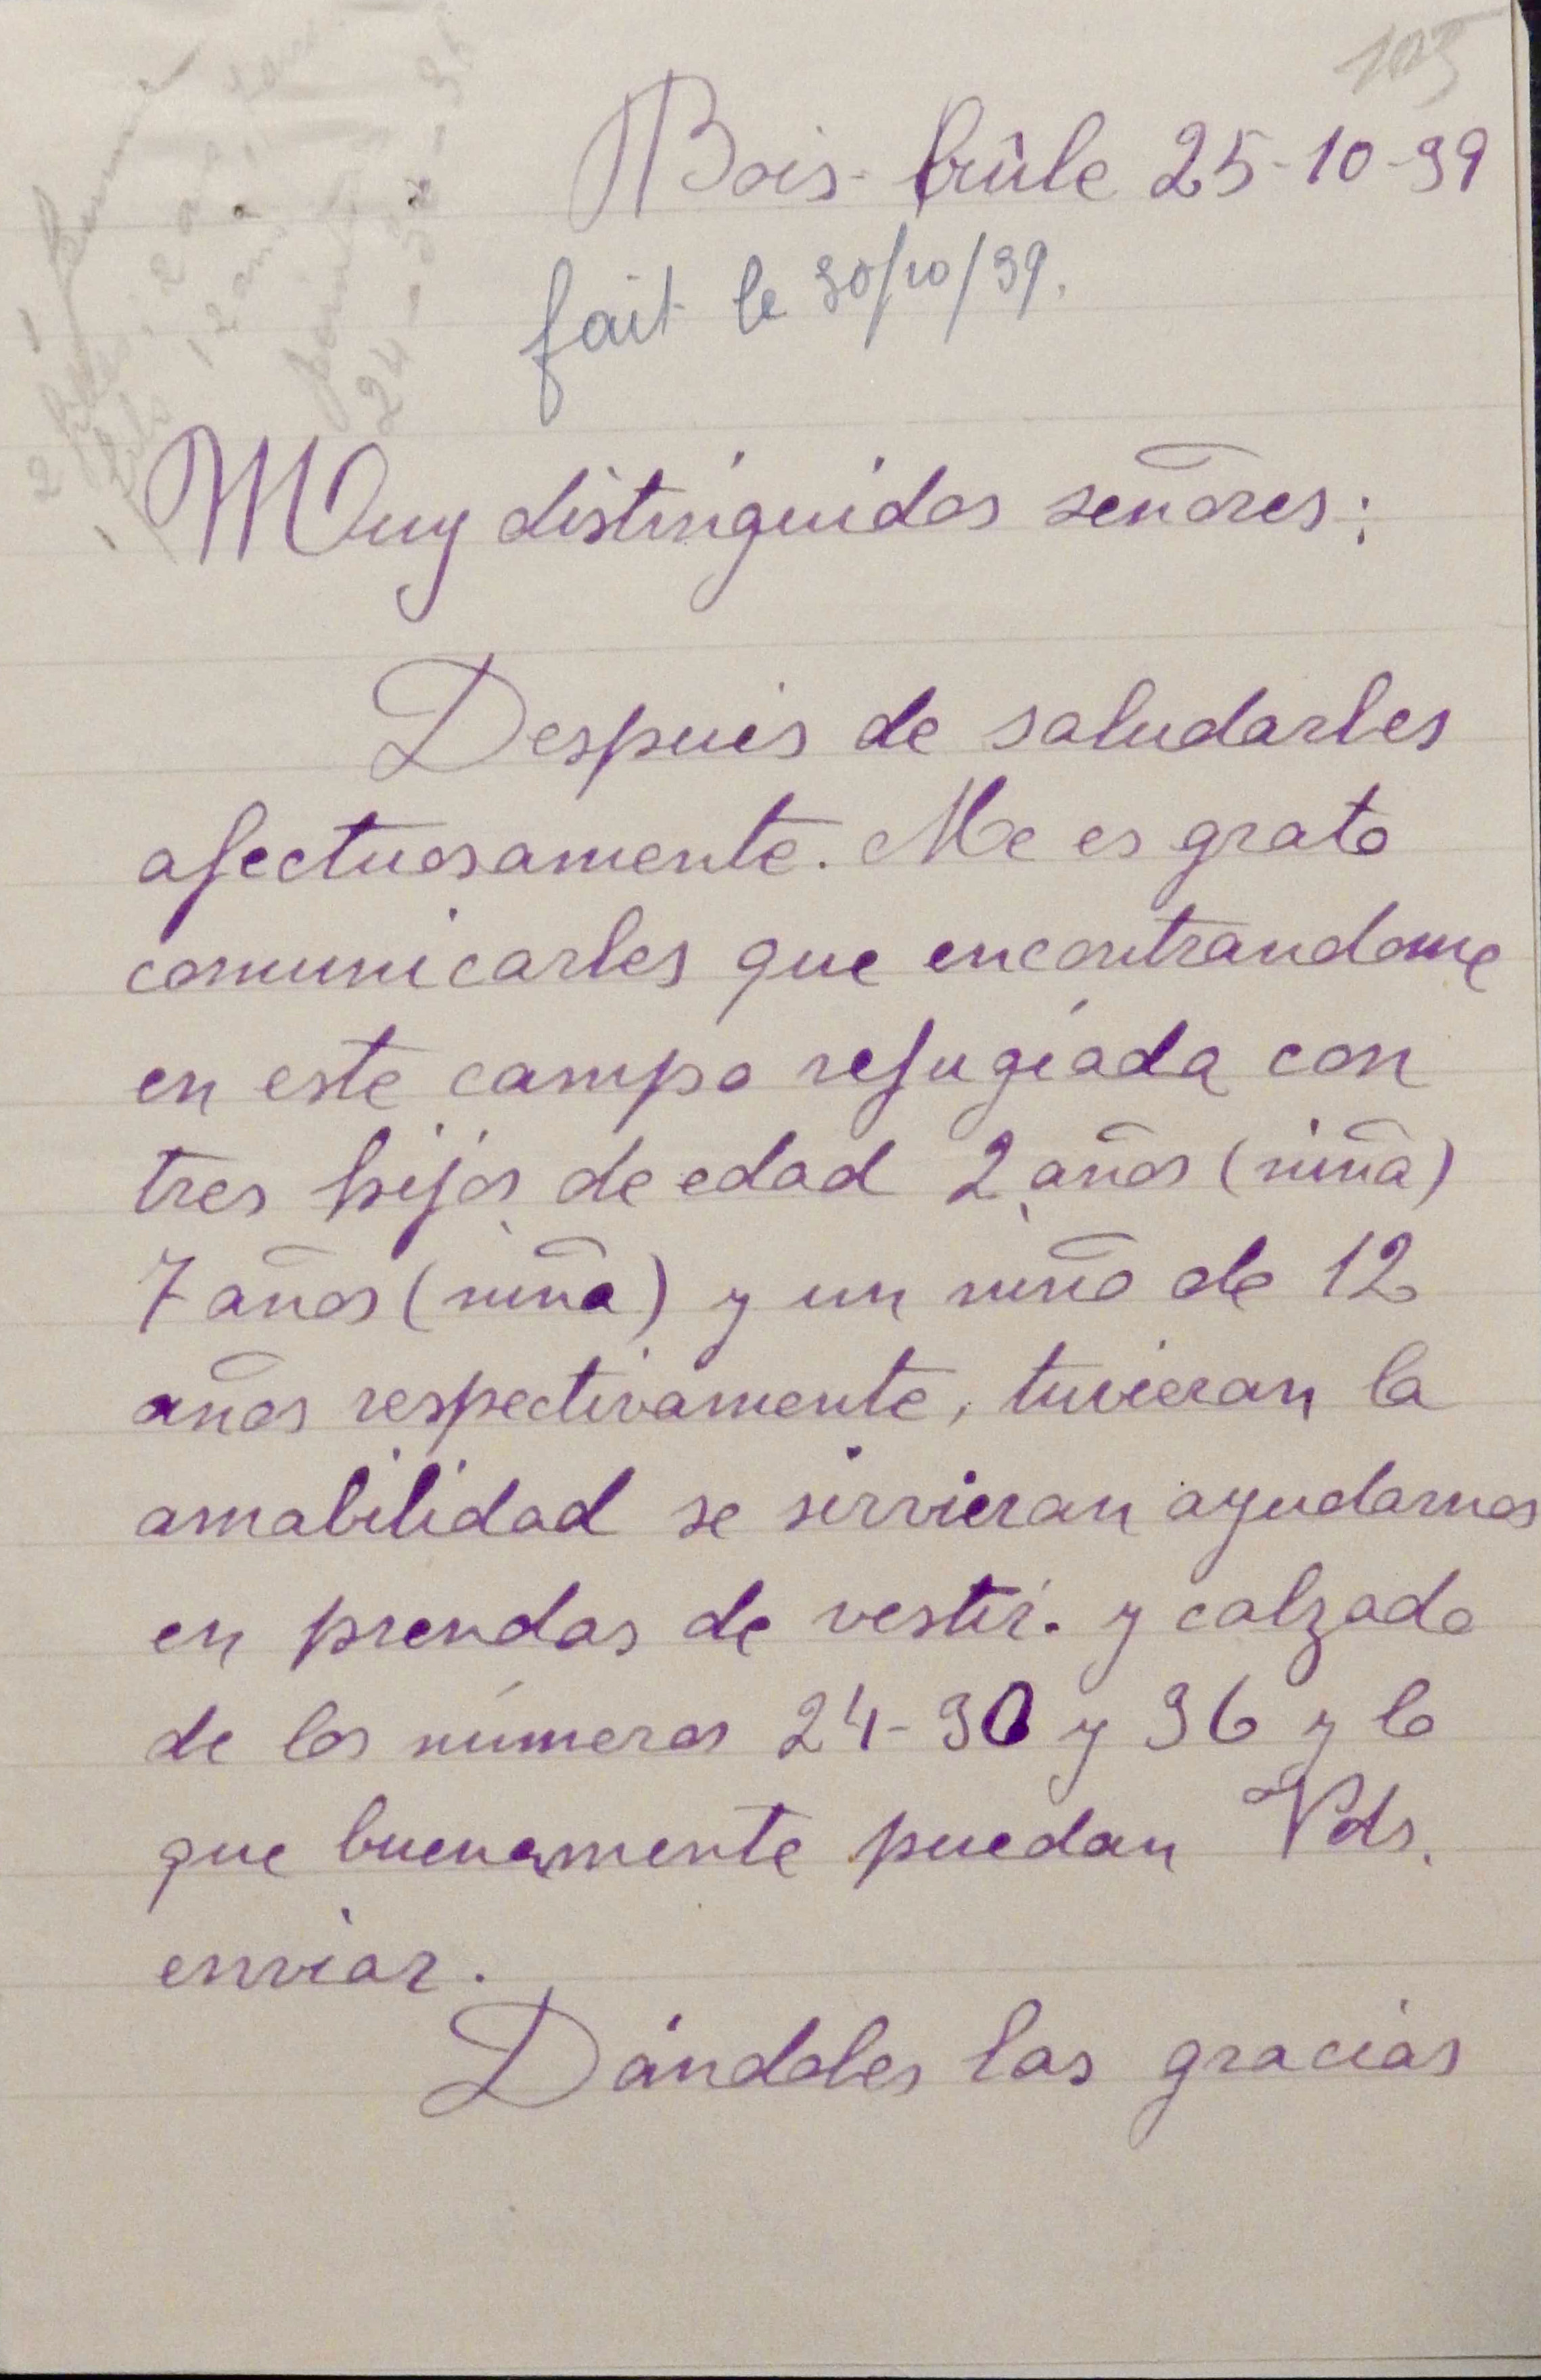 103
Bois-brûle 25-10-39
fait le 30/10/39.
Muy distinguidos señores:
Despues de saludarles
afectuosamente. Me es grato
comunicarles que encontrandome
en este campo refugiada con
tres hijos de edad 2 años (niña)
7 años (niña) y un niño de 12
años respectivamente, tuvieran la
amabilidad se sirvieran ayudarnos
en prendas de vestir. y calzado
de los números 24-30 y 36 y lo
que buenamente puedan Vds.
enviar.
Dándoles las gracias